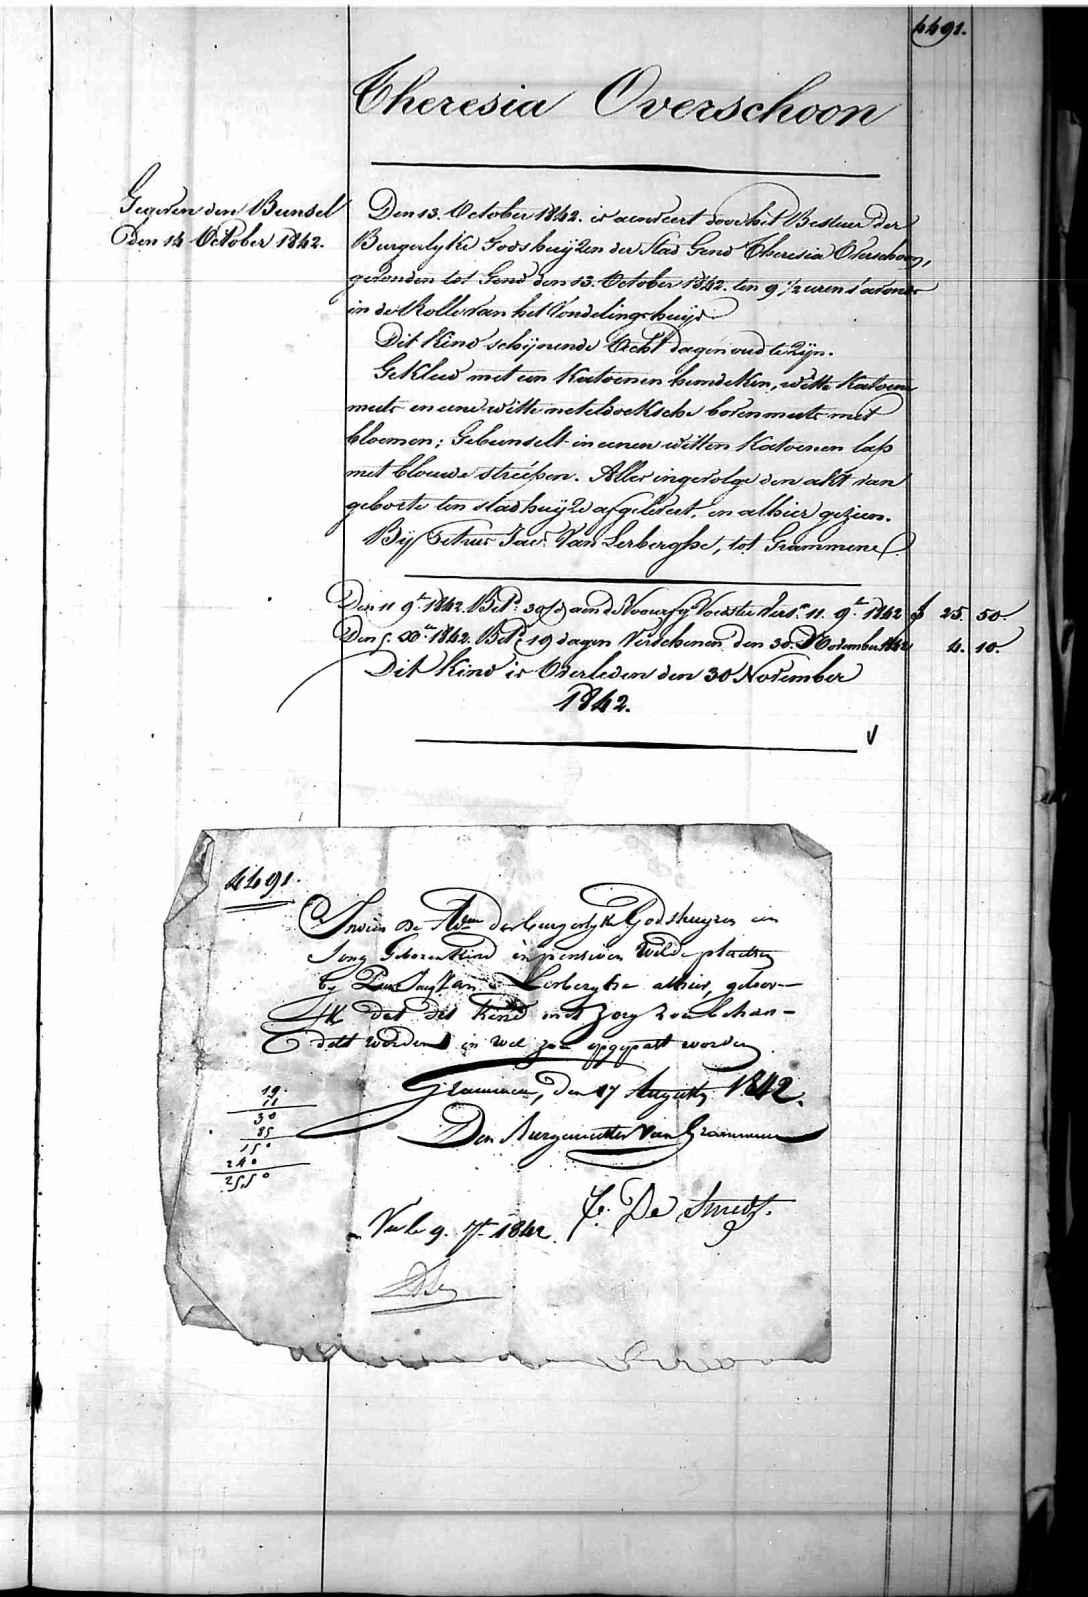 4491.
Theresia Overschoon
Gegeven den Bunsel
Den 14 October 1842.
Den 13. October 1842. is aenveert door het Bestuer der
Burgerlyke Godshuijzen der Stad Gend Theresia Overschoon,
gevonden tot Gend den 13. October 1842. ten 9 1/2 uren s'avonds
in de Rolle van het Vondelingshuijs
Dit Kind schijnende Acht dagen oud te zijn.
Gekleed met een Katoenen hemdeken, witte Katoene
muts en eene witte neteldoeksche bovenmuts met
bloemen; Gebunselt in eenen witten Katoenen lap
met blouwe streepen. Alles ingevolge den akt van
geborte ten stadhuijze afgelevert, en alhier gezien.
Bij Petrus Jac: Van Lerberghe, tot Grammene
Den 11 9.r 1842. Bet.d aen de Voedster 11. 9.r 1842 f 25. 50.
Den 5. 1842. Bet.d 19 dagen Verschenen den 30. November 1842 4. 10.
Dit Kind is Overleden den 30 November
1842.
4491.
Indien De der burgerlyke Godshuyzen een
Jong Geboren Kind in pensioen wilde plaetsen
by Van Lerberghe alhier, geloov-
ik dat dit Kind met zorg zou behan-
delt worden en wel zou opgepast worden
Grammene, den 17 Augusty 1842.
Den Burgemeester Van Grammene
De Smedt.
Vu le 9. 1842
19.
11
30
85
150
240
2550